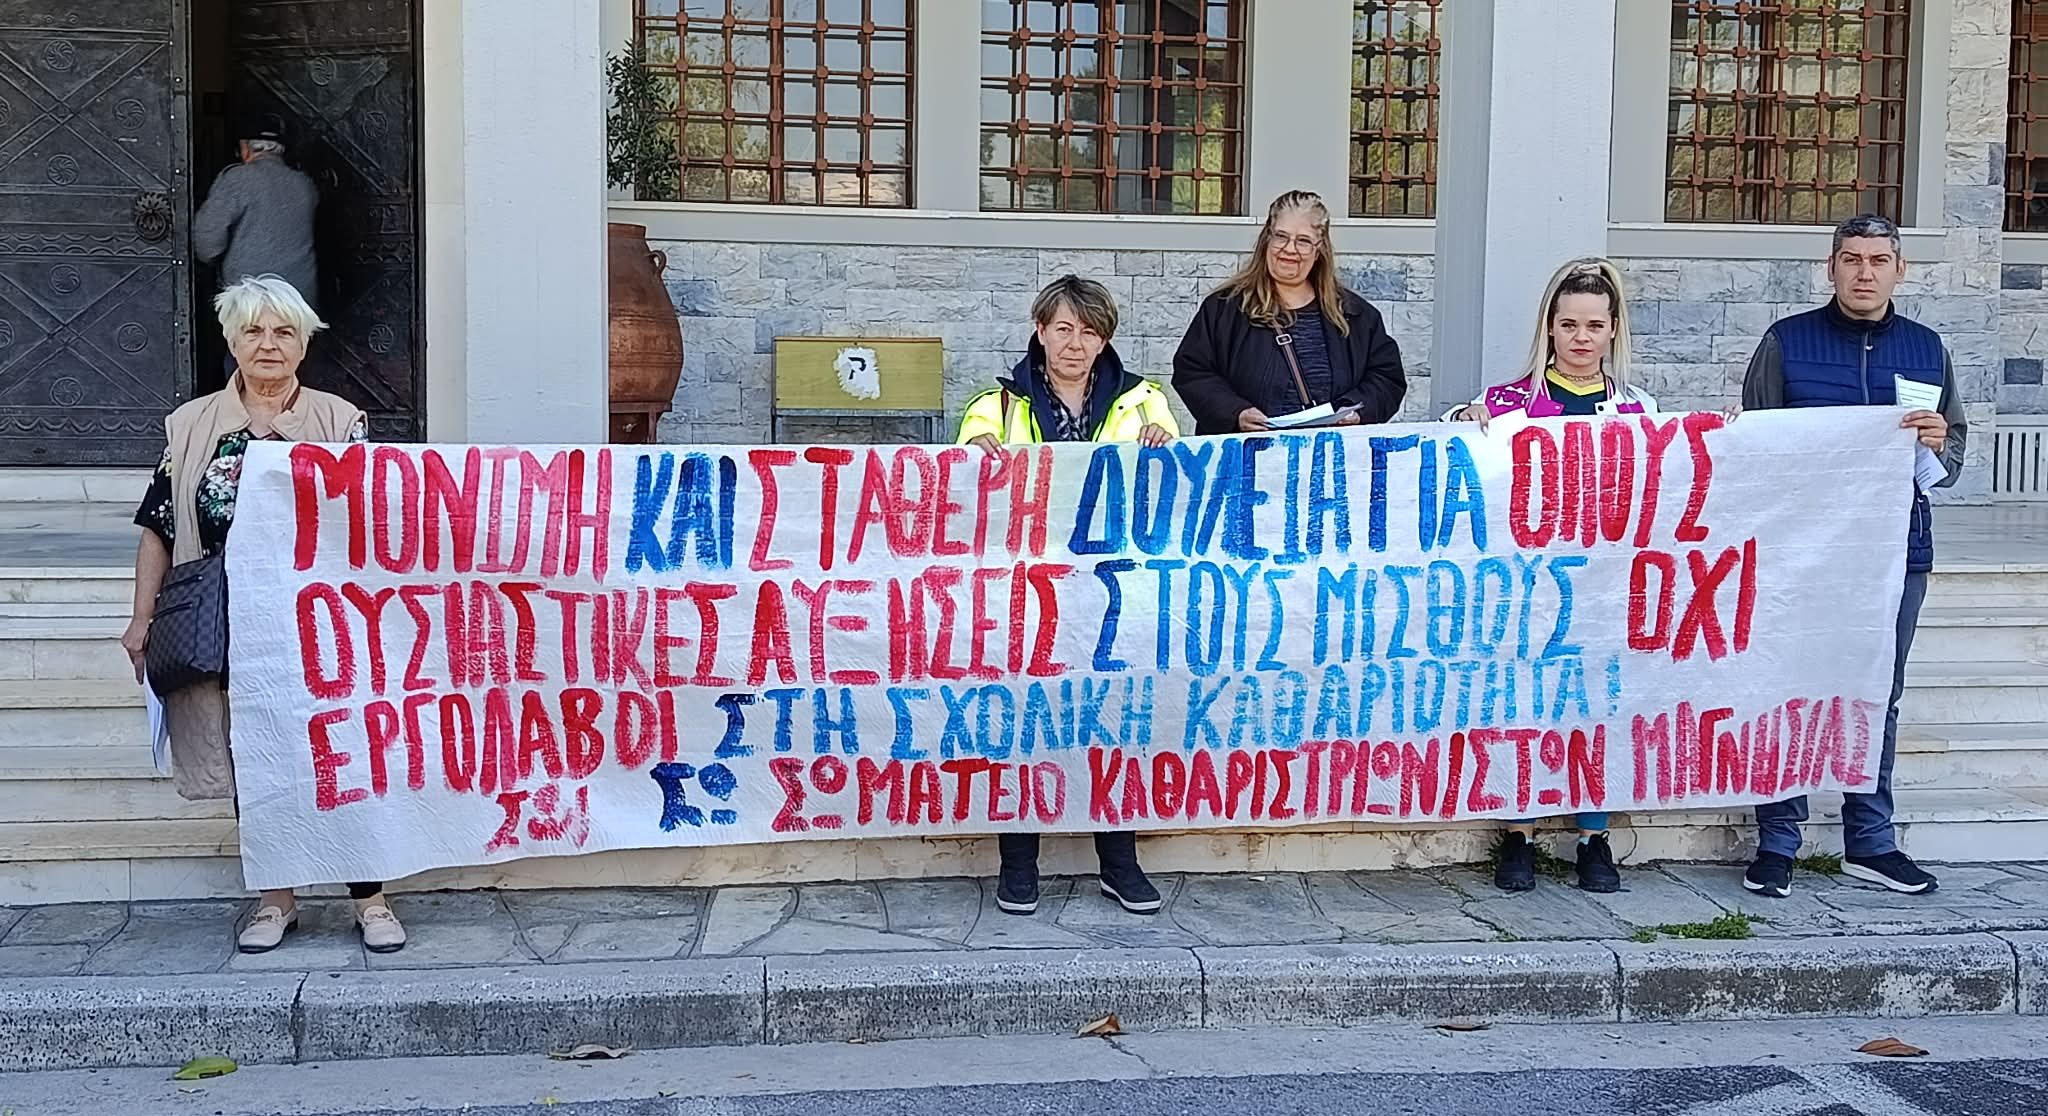 ΜΟΝΙΜΗ ΚΑΙ ΣΤΑΘΕΡΗ ΔΟΥΛΕΙΑ ΓΙΑ ΟΛΟΥΣ
ΟΥΣΙΑΣΤΙΚΕΣ ΑΥΞΗΣΕΙΣ ΣΤΟΥΣ ΜΙΣΘΟΥΣ ΟΧΙ
ΕΡΓΟΛΑΒΟΙ ΣΤΗ ΣΧΟΛΙΚΗ ΚΑΘΑΡΙΟΤΗΤΑ!
ΣΩΜΑΤΕΙΟ ΚΑΘΑΡΙΣΤΡΙΩΝ/ΣΤΩΝ ΜΑΓΝΗΣΙΑΣ